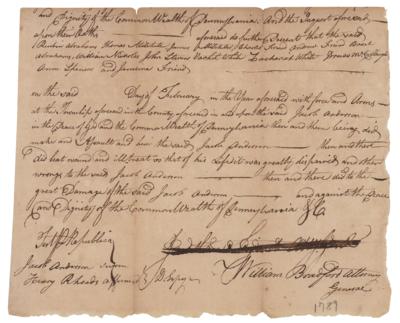 and Dignity of the Common Wealth of Pennsylvania. And the Inquest aforesaid
upon their Oaths aforesaid do further Present that the said
Reuben Abrahams Thomas James Friend Andrew Friend Enoch
Abrahams, William Nicholas John Stevens White Zachariah White Thomas
Ann Spencer and Friend
on the said Day of February in the Year aforesaid with force and Arms
at the Township aforesaid in the County aforesaid in and upon the said Jacob Anderson
in the Peace of God and the Common Wealth of Pennsylvania then and there being, did
make and Assault and him the said Jacob Anderson then and there
did beat wound and illtreat so that of his Life it was greatly dispaired, and other
wrongs to the said Jacob Anderson then and there did to the
great Damage of the said Jacob Anderson and against the Peace
and Dignity of the Common Wealth of Pennsylvania &c
Test pro Republica
Jacob Anderson sworn
Rhoads affirmed
William Bradford Attorney
General
1789